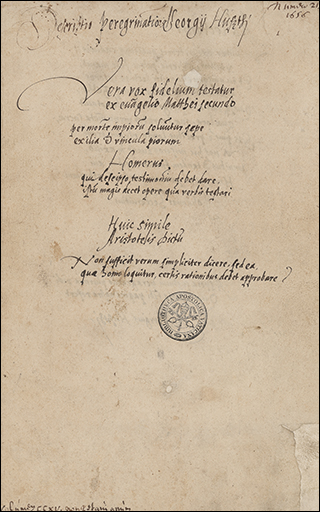 Descriptio peregrinationis Georgij Huszthi
Numero 21
1656
Vera vox fidelium testatur
ex euangelio Matthei secundo
per mortem impiorum soluuntur sepe
exilia et vincula piorum
Homerus
qui de seipso testimonium debet dare,
magis decet opere qua verbis testari
Huic simile
Aristotelis dictu
Non sufficit verum simpliciter dicere, sed ea
quae homo loquitur, certis rationibus debet approbare
BIBLIOTECA APOSTOLICA VATICANA